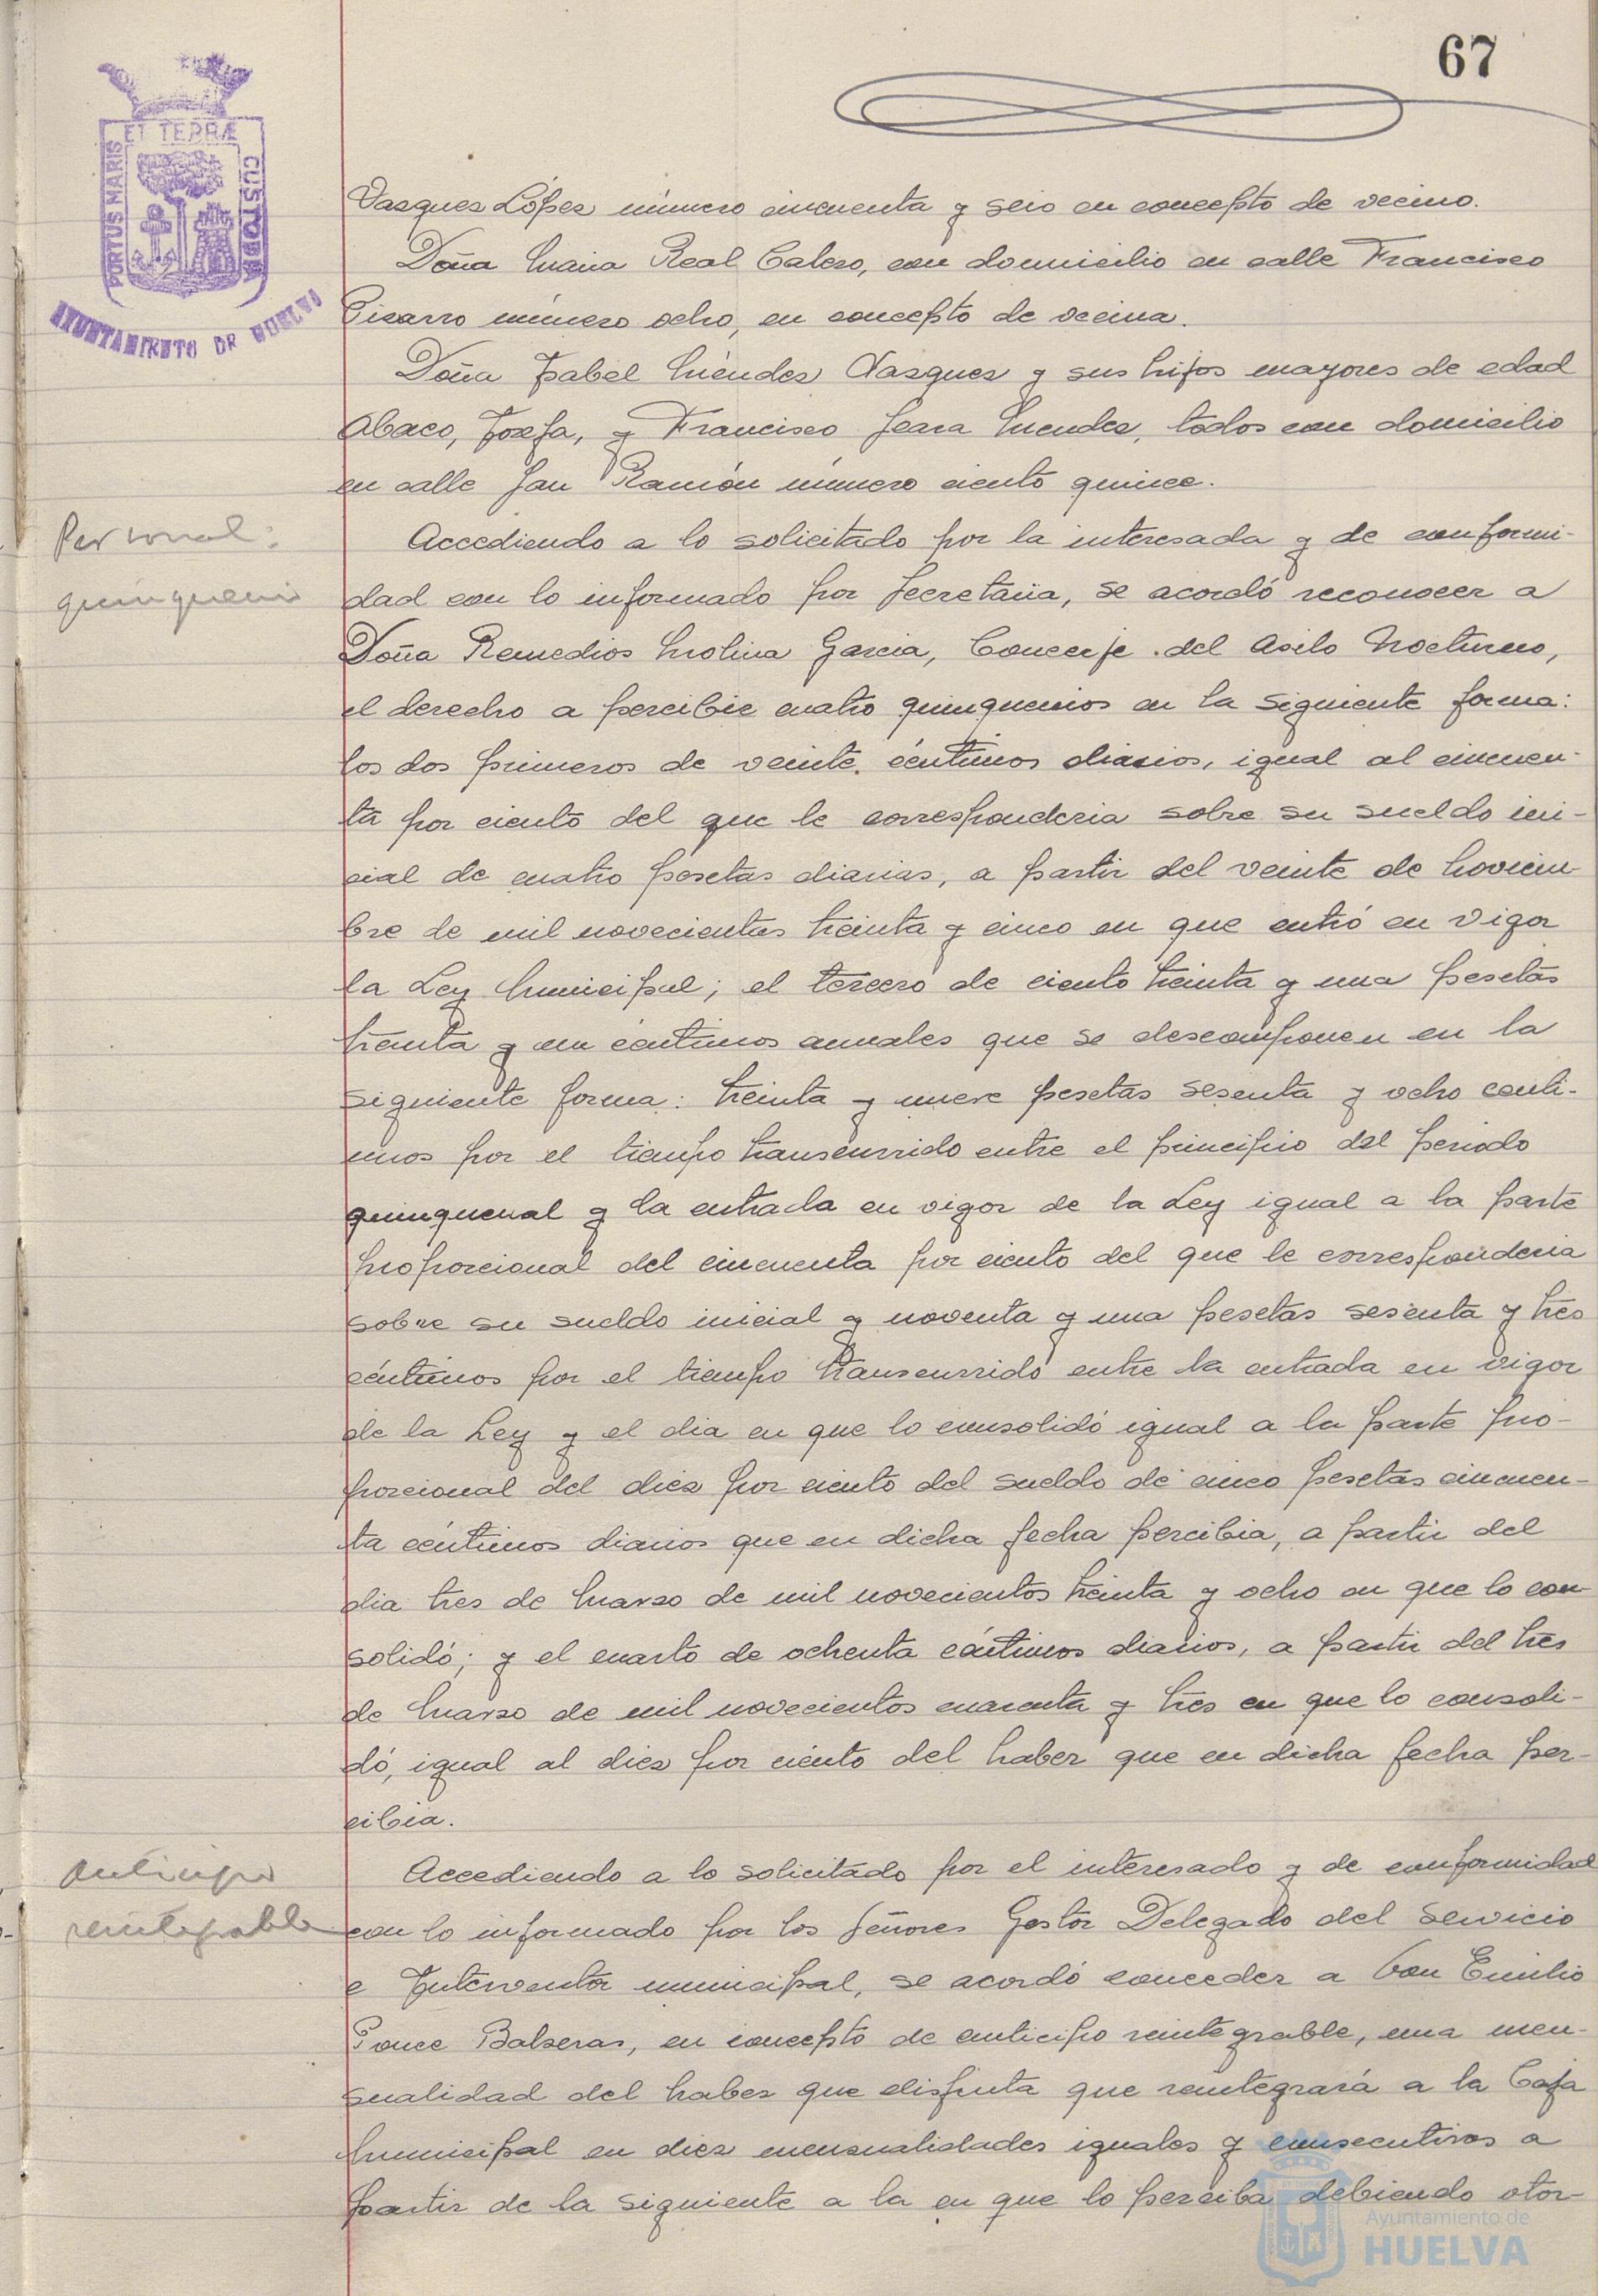 67
ET TERRÆ
PORTUS MARIS
CUSTODIA
AYUNTAMIENTO DE HUELVA
Vasques Lópes número cincuenta y seis en concepto de vecino.
Doña Maria Real Calero, con domicilio en calle Francisco
Pisarro número ocho, en concepto de vecina.
Doña Isabel Méndes Vasques y sus hijos mayores de edad
Josefa, y Francisco Mendes, todos con domicilio
en calle San Ramón número ciento quince.
Personal:
quinquenio
Accediendo a lo solicitado por la interesada y de conformi-
dad con lo informado por Secretaria, se acordó reconocer a
Doña Remedios Molina Garcia, Conserje del Asilo Nocturno,
el derecho a percibir cuatro quinquenios en la siguiente forma:
los dos primeros de veinte céntimos diarios, igual al cincuen-
ta por ciento del que le corresponderia sobre su sueldo ini-
cial de cuatro pesetas diarias, a partir del veinte de Noviem-
bre de mil novecientos treinta y cinco en que entró en vigor
la Ley Municipal; el tercero de ciento treinta y una pesetas
treinta y un céntimos anuales que se descomponen en la
siguiente forma: treinta y nueve pesetas sesenta y ocho centi-
mos por el tiempo transcurrido entre el principio del periodo
quinquenal y la entrada en vigor de la Ley igual a la parte
proporcional del cincuenta por ciento del que le corresponderia
sobre su sueldo inicial y noventa y una pesetas sesenta y tres
céntimos por el tiempo transcurrido entre la entrada en vigor
de la Ley y el dia en que lo consolidó igual a la parte pro-
porcional del dies por ciento del sueldo de cinco pesetas cincuen-
ta céntimos diarios que en dicha fecha percibia, a partir del
dia tres de Marso de mil novecientos treinta y ocho en que lo con-
solidó; y el cuarto de ochenta céntimos diarios, a partir del tres
de Marso de mil novecientos cuarenta y tres en que lo consoli-
dó, igual al dies por ciento del haber que en dicha fecha per-
cibia.
Anticipo
reintegrable
Accediendo a lo solicitado por el interesado y de conformidad
con lo informado por los Señores Gestor Delegado del Servicio
e Interventor municipal, se acordó conceder a Don Emilio
Ponce Balseras, en concepto de anticipo reintegrable, una men-
sualidad del haber que disfruta que reintegrará a la Caja
Municipal en dies mensualidades iguales y consecutivas a
partir de la siguiente a la en que lo perciba debiendo otor-
Ayuntamiento de
HUELVA